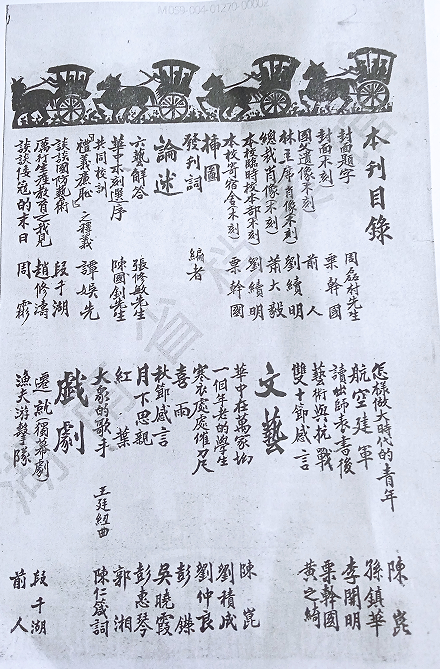 本刊目錄
封面題字 周磊村先生
封面木刻 栗幹國
國父遺像木刻 前人
林主席肖像木刻 劉績明
總裁肖像木刻 蕭大毅
本校臨時校本部木刻 劉績明
本校寄宿舍木刻 栗幹國
插圖
發刊詞 編者
論述
六藝解答 張修敏先生
華中木刻選序 陳國釗先生
共同校訓
「禮義廉恥」之釋義 譚娛先
談談國防藝術 段千湖
厲行生產教育之我見 趙修濤
談談倭寇的末日 周霧
怎樣做大時代的青年 陳崑
航空建軍 孫鎮華
讀出師表書後 李開明
藝術與抗戰 栗幹國
雙十節感言 黃之綺
文藝
華中在萬家坳 陳崑
一個年老的學生 劉積成
寒衣處處催刀尺 劉仲良
喜雨 彭鑠
秋節感言 吳曉霞
月下思親 彭惠琴
紅葉 郭湘
大眾的歌手 王廷紐曲 陳仁箴詞
戲劇
遷就獨幕劇 段千湖
漁夫游擊隊 前人